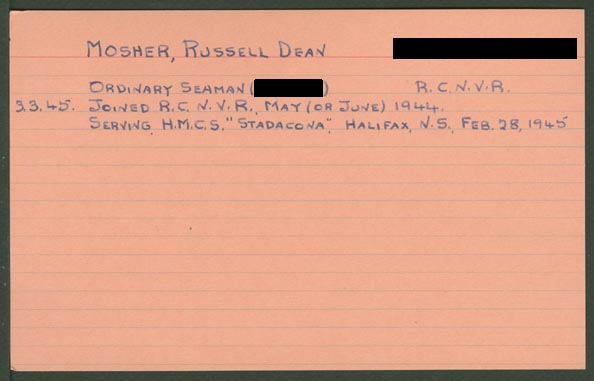 MOSHER, RUSSELL DEAN
ORDINARY SEAMAN ( ) R.C.N.V.R.
3.3.45. JOINED R.C.N.V.R., MAY (OR JUNE) 1944.
SERVING, H.M.C.S. "STADACONA", HALIFAX, N.S., FEB. 28, 1945